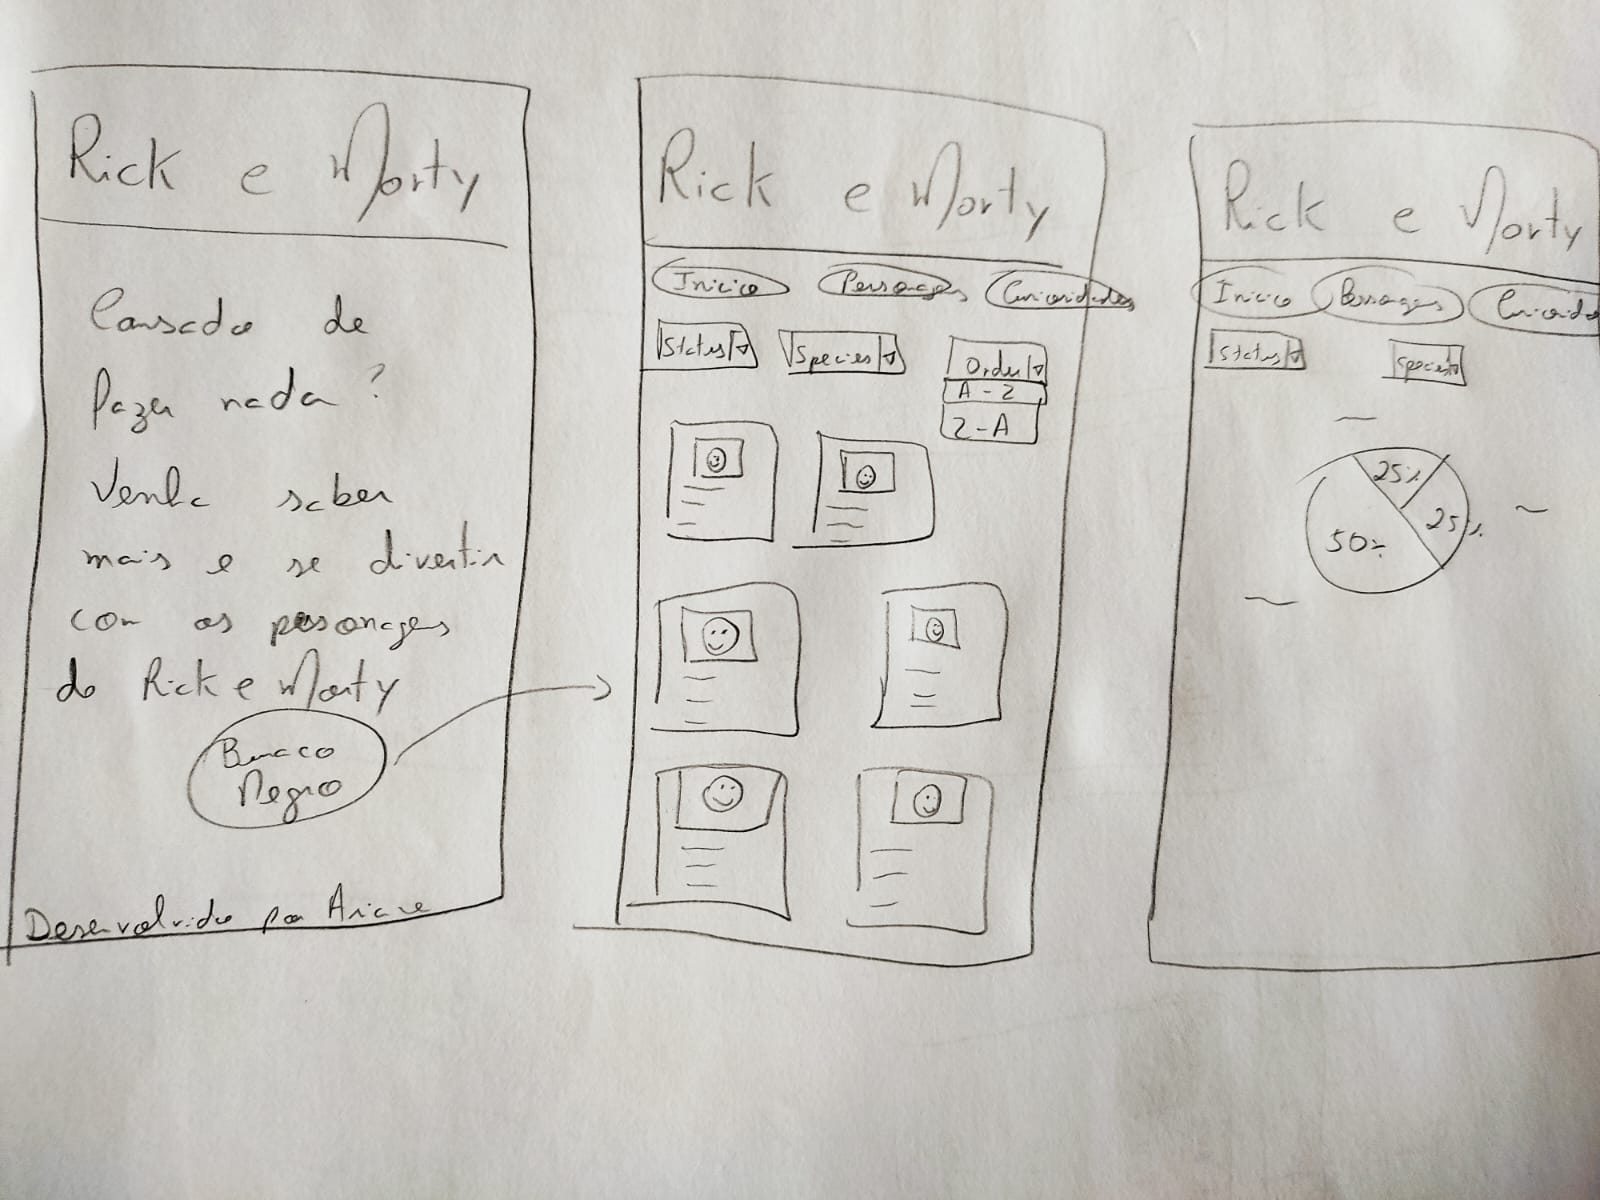 Rick e Morty
Cansado de
fazer nada?
Venha saber
mais e se divertir
com os personagens
do Rick e Morty
Buraco
Negro
Desenvolvido por Ariane
Rick e Morty
Inicio Personagens Curiosidades
Status Species Order
A-Z
Z-A
Rick e Morty
Inicio Personagens Curiosida
Status Species
25%
25%
50%